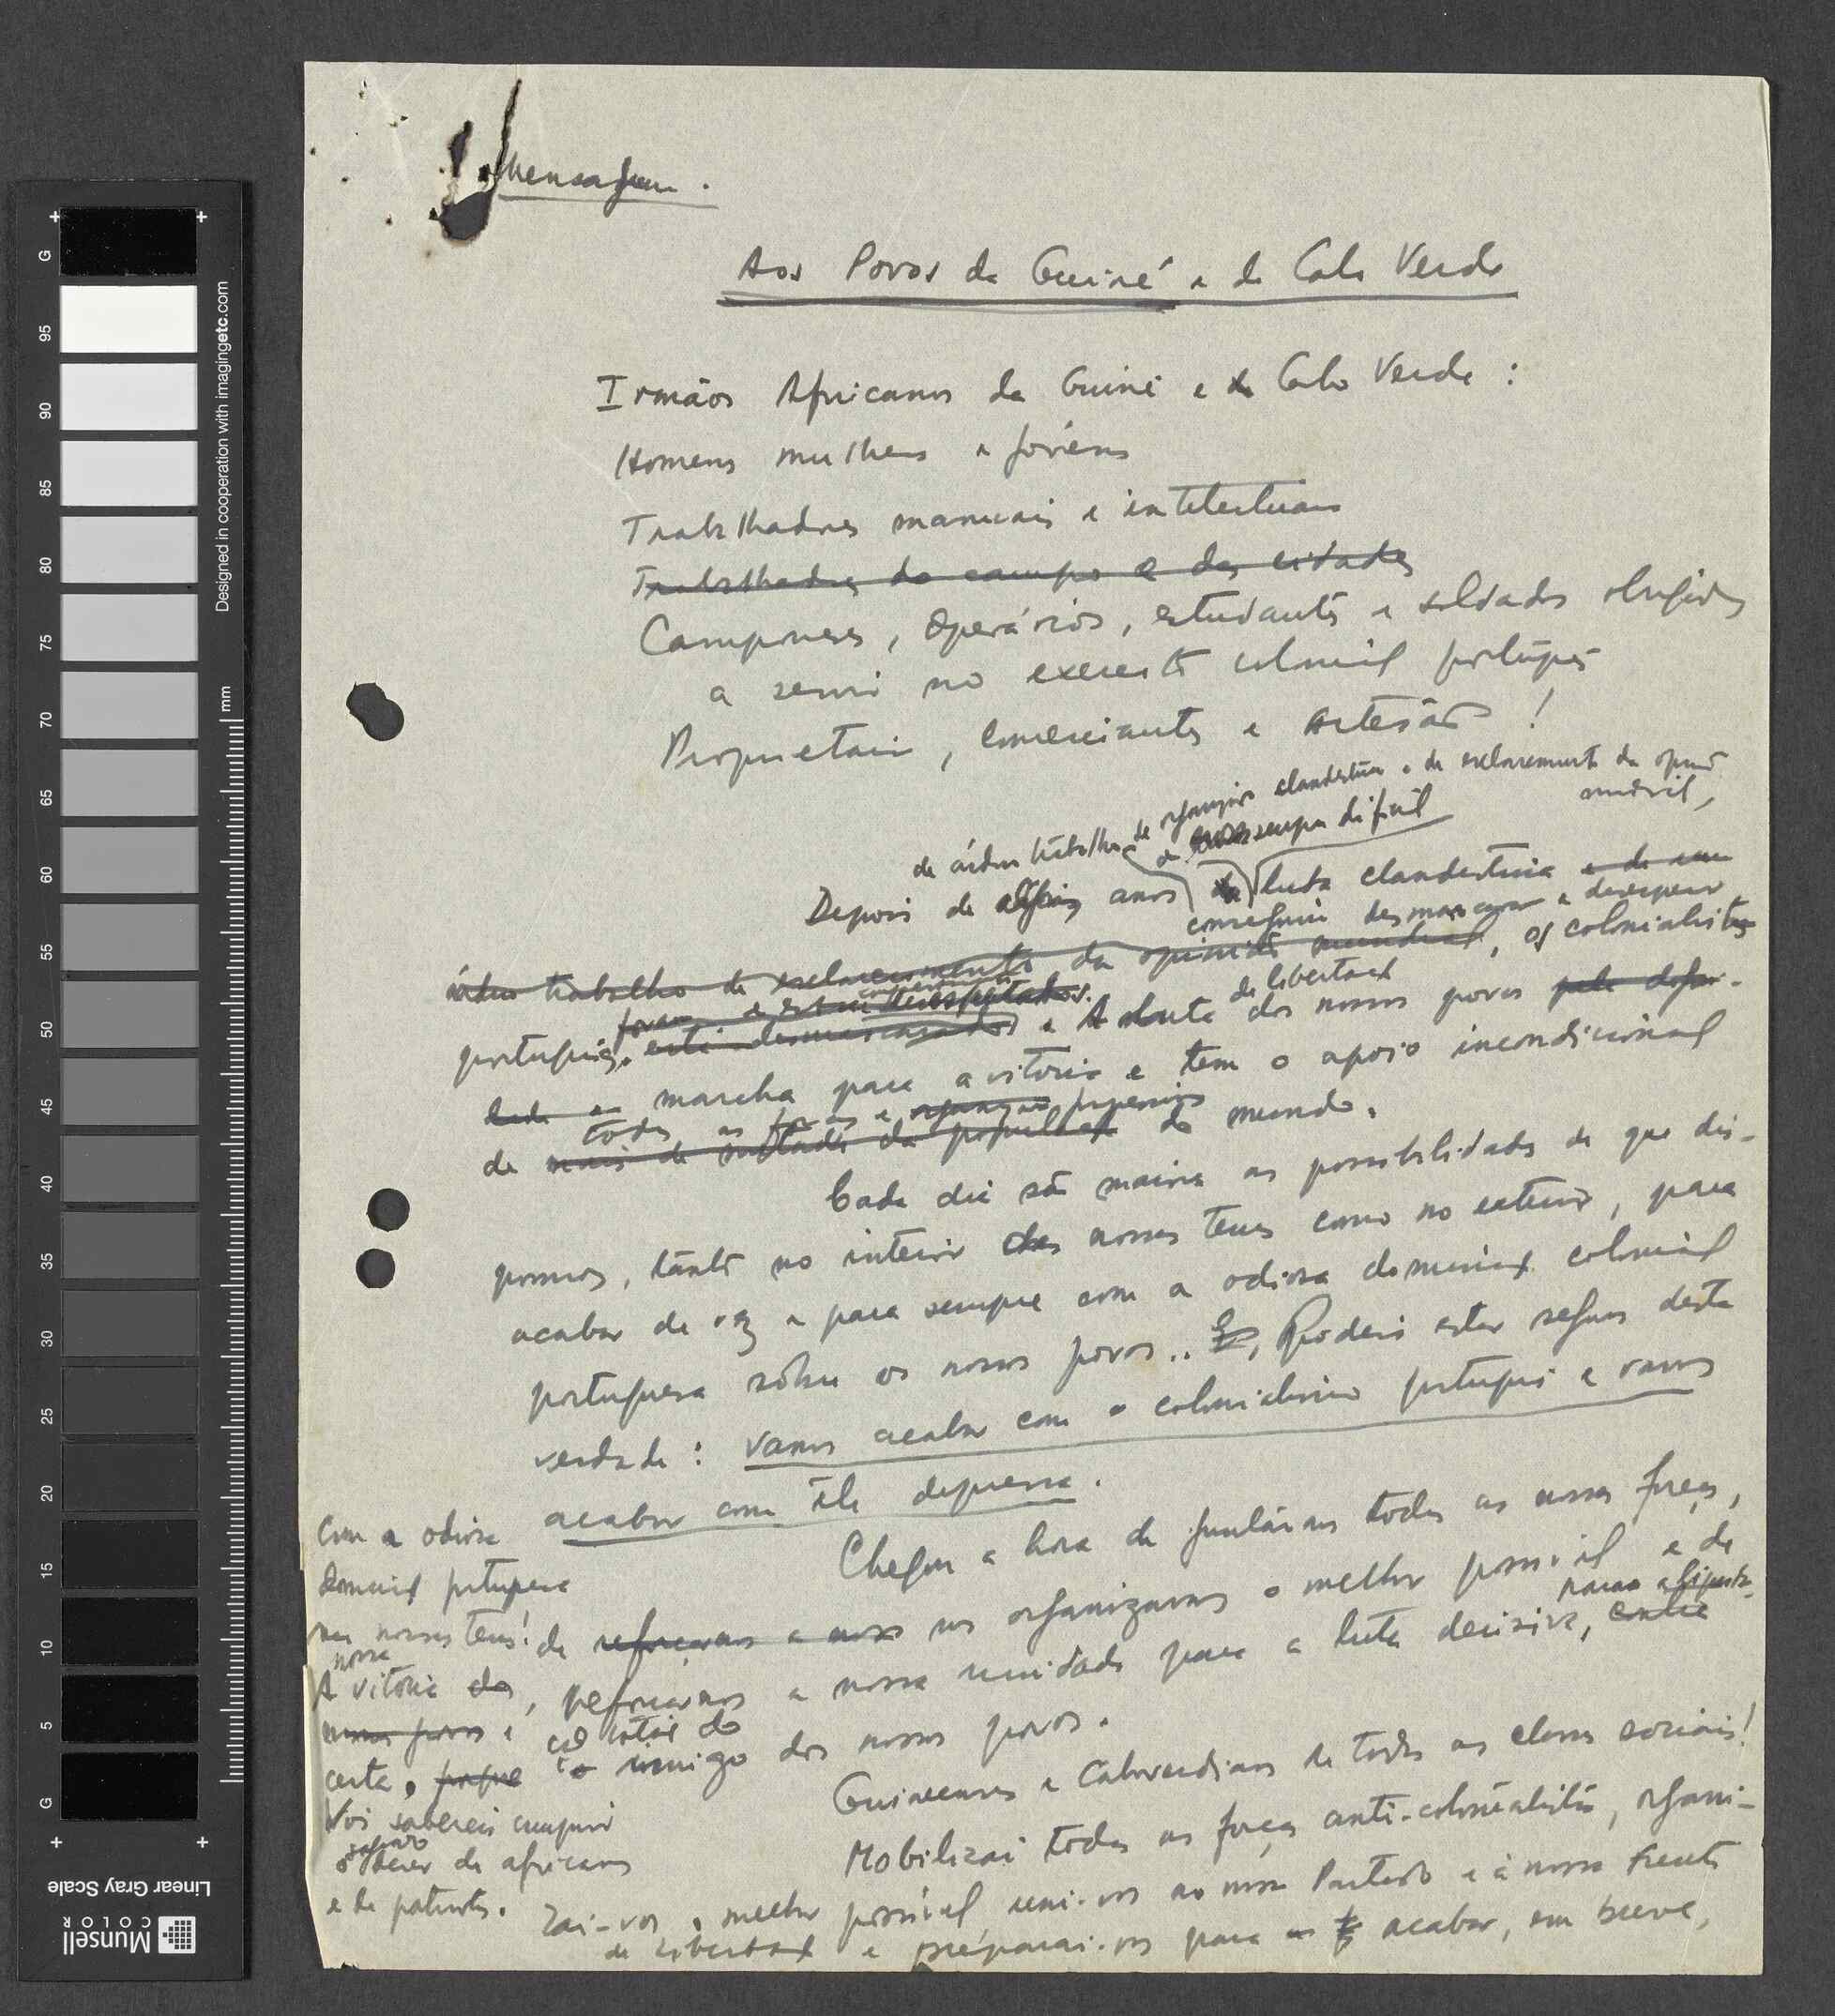 Mensagem.
Aos Povos da Guiné e de Cabo Verde
Irmãos Africanos da Guiné e de Cabo Verde :
Homens mulheres e jóvens
Trabalhadores manuais e intelectuais
Trabalhadores do campo e das cidades
Camponeses, Operários, estudantes e soldados obrigados
a servir no exercito colonial português
Proprietarios, Comerciantes e Artesãos !
de árduo trabalho de organização clandestina e de esclarecimento da opinião
mundial,
e sempre dificil
Depois de alguns anos da luta clandestina e de um
conseguiu desmascarar e desesperar
árduo trabalho de esclarecimento da opinião mundial, os colonialistas
foram
portugueses. estão desmascarados e A luta de libertação dos nossos povos pela
marcha para a vitória e tem o apoio incondicional
todas as forças e organizações
de mais de metade da população do mundo.
Cada dia são maiores as possibilidades de que dis-
pomos, tanto no interior das nossas terras como no exterior, para
acabar de vez e para sempre com a odiosa dominação colonial
portuguesa sôbre os nossos povos.. Podeis estar seguros desta
verdade : vamos acabar com o colonialismo português e vamos
acabar com êle depressa.
Chegou a hora de juntármos todas as nossas forças,
de reforçarmos a nossa nos organizarmos o melhor possivel e de
reforçármos a nossa unidade para a luta decisiva, contra
para a liquidação
total do
o inimigo dos nossos povos.
Guineenses e Caboverdianos de todas as classes sociais!
Mobilizai todas as forças anti-colonialistas, organi-
zai-vos o melhor possível, uni-vos no nosso Partido e à nossa Frente
de Libertação e preparai-vos para acabar, em breve,
Com a odiosa
dominação portuguesa
nas nossas terras!
nossa
A vitória dos
nossos povos é
certa, porque
Vós sabereis cumprir
o sagrado dever de africanos
e de patriotas.
Designed in cooperation with imagingetc.com
mm
G
95
90
85
80
75
70
65
60
55
50
45
40
35
30
25
20
15
10
5
G
Linear Gray Scale
Munsell
COLOR